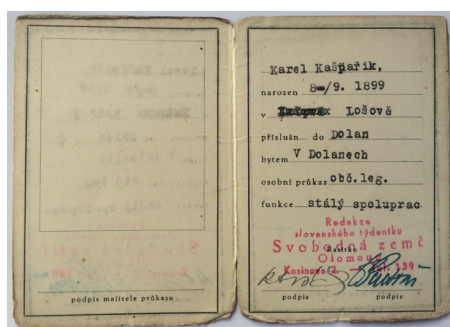 podpis majitele průkazu
Karel Kašpařík,
narozen 8-/9. 1899
v Lošově
příslušn. do Dolan
bytem V Dolanech
osobní průkaz obč.leg.
funkce stálý spoluprac
Redakce
slovanského týdeníku
Razítko
Svobodná země
Olomouc
Kosinova 2 — tel. 139
podpis podpis